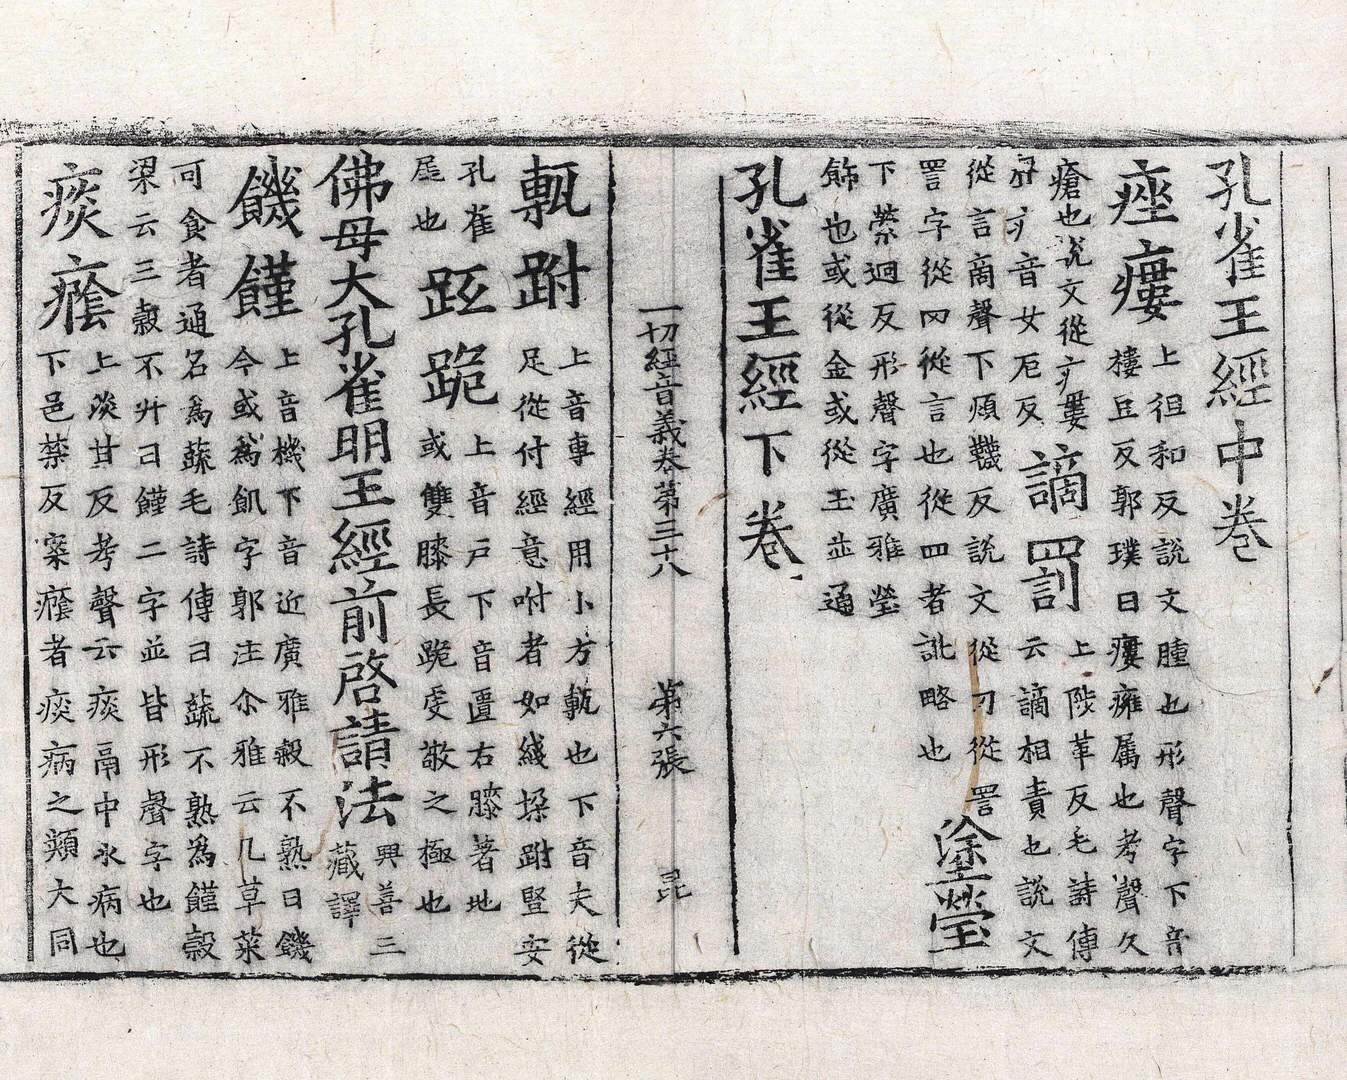 孔雀王經中卷
痤瘻
上徂和反說文腫也形聲字下音
樓豆反郭璞曰瘻癰属也考聲久
瘡也說文從疒婁
疒音女厄反
謫罰
上陟革反毛詩傳
云謫相責也說文
從言啇聲下煩韈反說文從刀從詈
詈字從罓從言也從四者訛略也
塗瑩
下縈迴反形聲字廣雅瑩
飾也或從金或從玉並通
孔雀王經下卷
一切經音義卷第三十八 第六張 昆
甎跗
上音專經用卜方甎也下音夫從
足從付經意咐者如綫垜跗竪安
孔雀
尾也
跪
上音戸下音匱右膝著地
或雙膝長跪虔敬之極也
佛母大孔雀明王經前啓請法
興善三
藏譯
饑饉
上音機下音近廣雅糓不熟曰饑
今或爲飢字郭注尒雅云凡草菜
可食者通名爲蔬毛詩傳曰蔬不熟爲饉糓
梁云三糓不升曰饉二字並皆形聲字也
痰癊
上淡甘反考聲云痰鬲中水病也
下邑禁反案癊者痰病之類大同